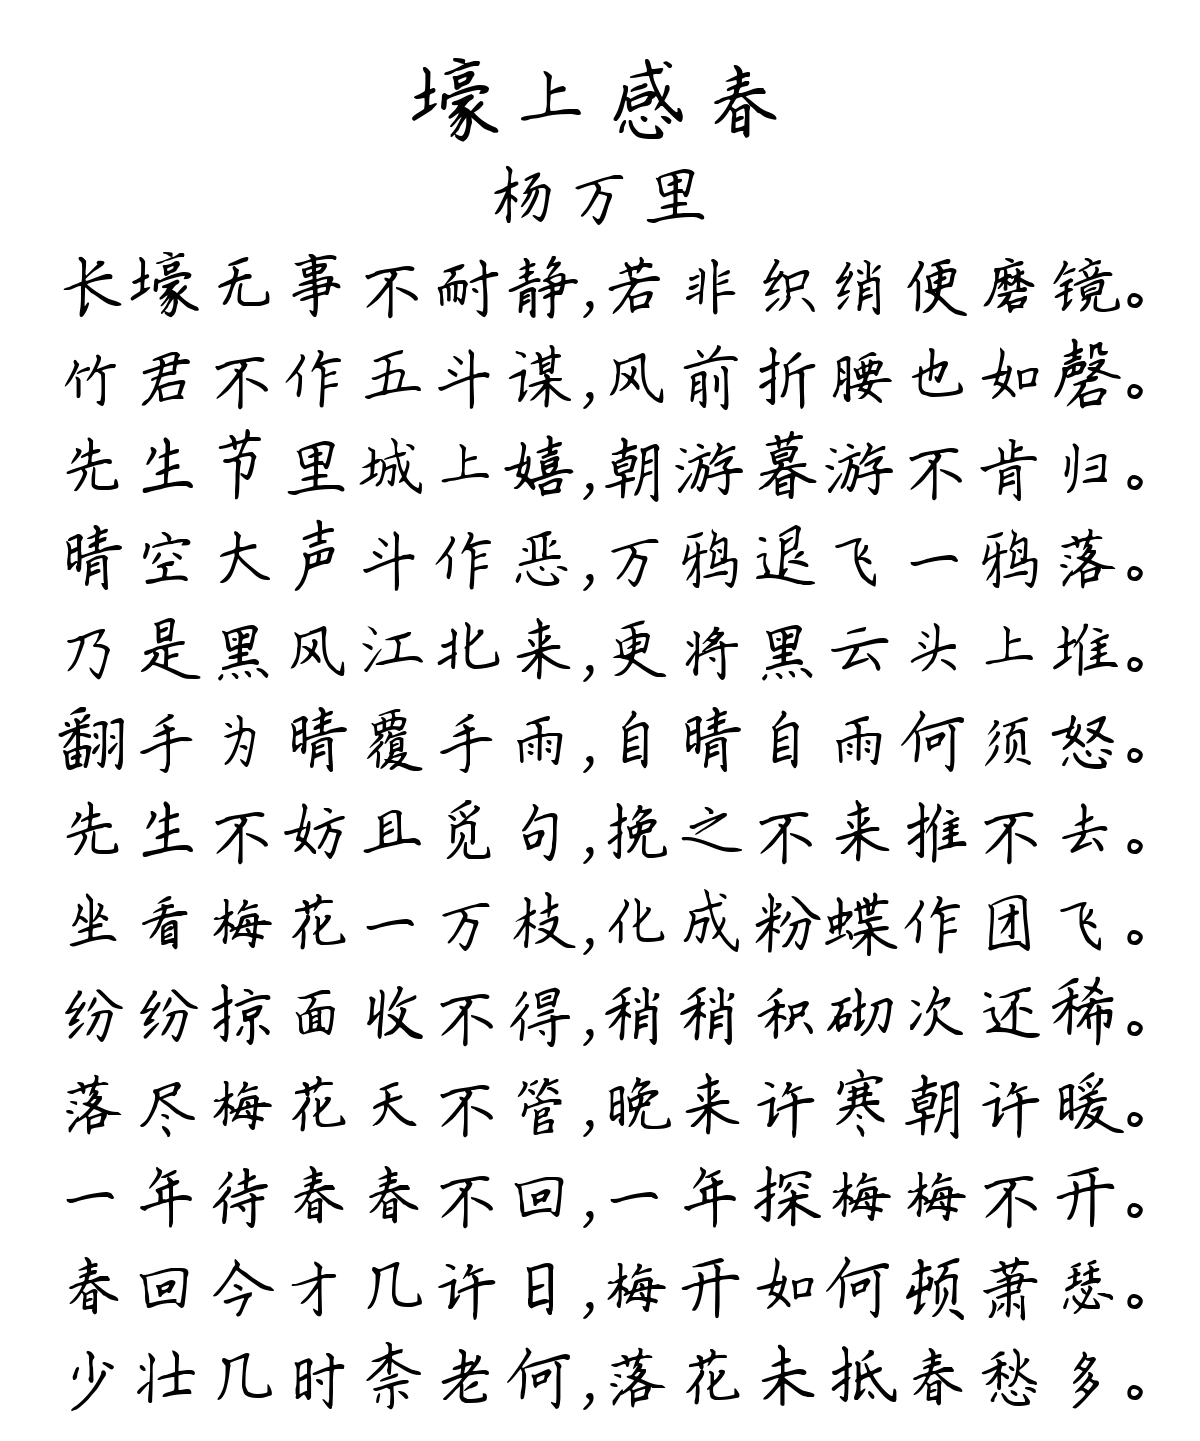 壕上感春
杨万里
长壕无事不耐静,若非织绡便磨镜。
竹君不作五斗谋,风前折腰也如磬。
先生节里城上嬉,朝游暮游不肯归。
晴空大声斗作恶,万鸦退飞一鸦落。
乃是黑风江北来,更将黑云头上堆。
翻手为晴覆手雨,自晴自雨何须怒。
先生不妨且觅句,挽之不来推不去。
坐看梅花一万枝,化成粉蝶作团飞。
纷纷掠面收不得,稍稍积砌次还稀。
落尽梅花天不管,晚来许寒朝许暖。
一年待春春不回,一年探梅梅不开。
春回今才几许日,梅开如何顿萧瑟。
少壮几时柰老何,落花未抵春愁多。